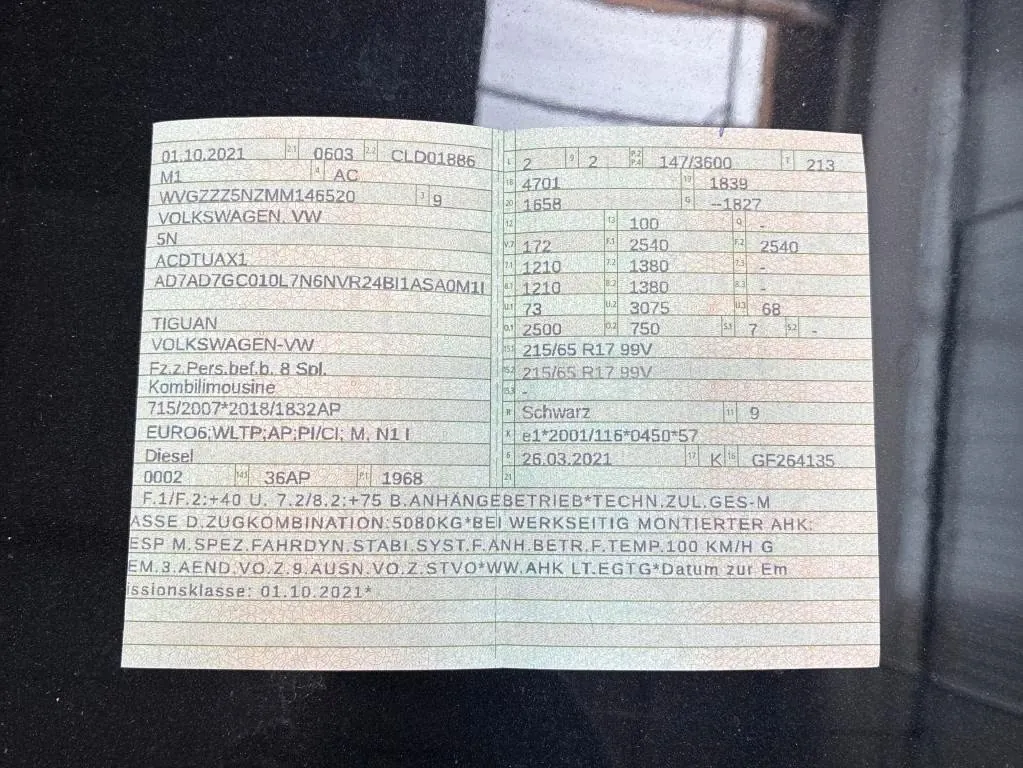 01.10.2021 2.1 0603 2.2 CLD01886
M1 4 AC
WVGZZZ5NZMM146520 3 9
VOLKSWAGEN, VW
5N
ACDTUAX1
AD7AD7GC010L7N6NVR24BI1ASA0M1I
TIGUAN
VOLKSWAGEN-VW
Fz.z.Pers.bef.b. 8 Spl.
Kombilimousine
715/2007*2018/1832AP
EURO6;WLTP;AP;PI/CI; M, N1 I
Diesel
0002 14.1 36AP P.1 1968
L 2 9 2 P.2 P.4 147/3600 T 213
18 4701 19 1839
20 1658 G –1827
12 13 100 Q -
V.7 172 F.1 2540 F.2 2540
7.1 1210 7.2 1380 7.3 -
8.1 1210 8.2 1380 8.3 -
U.1 73 U.2 3075 U.3 68
O.1 2500 O.2 750 S.1 7 S.2 -
15.1 215/65 R17 99V
15.2 215/65 R17 99V
15.3 -
R Schwarz 11 9
K e1*2001/116*0450*57
6 26.03.2021 17 K 16 GF264135
21
F.1/F.2:+40 U. 7.2/8.2:+75 B.ANHÄNGEBETRIEB*TECHN.ZUL.GES-M
ASSE D.ZUGKOMBINATION:5080KG*BEI WERKSEITIG MONTIERTER AHK:
ESP M.SPEZ.FAHRDYN.STABI.SYST.F.ANH.BETR.F.TEMP.100 KM/H G
EM.3.AEND.VO.Z.9.AUSN.VO.Z.STVO*WW.AHK LT.EGTG*Datum zur Em
issionsklasse: 01.10.2021*